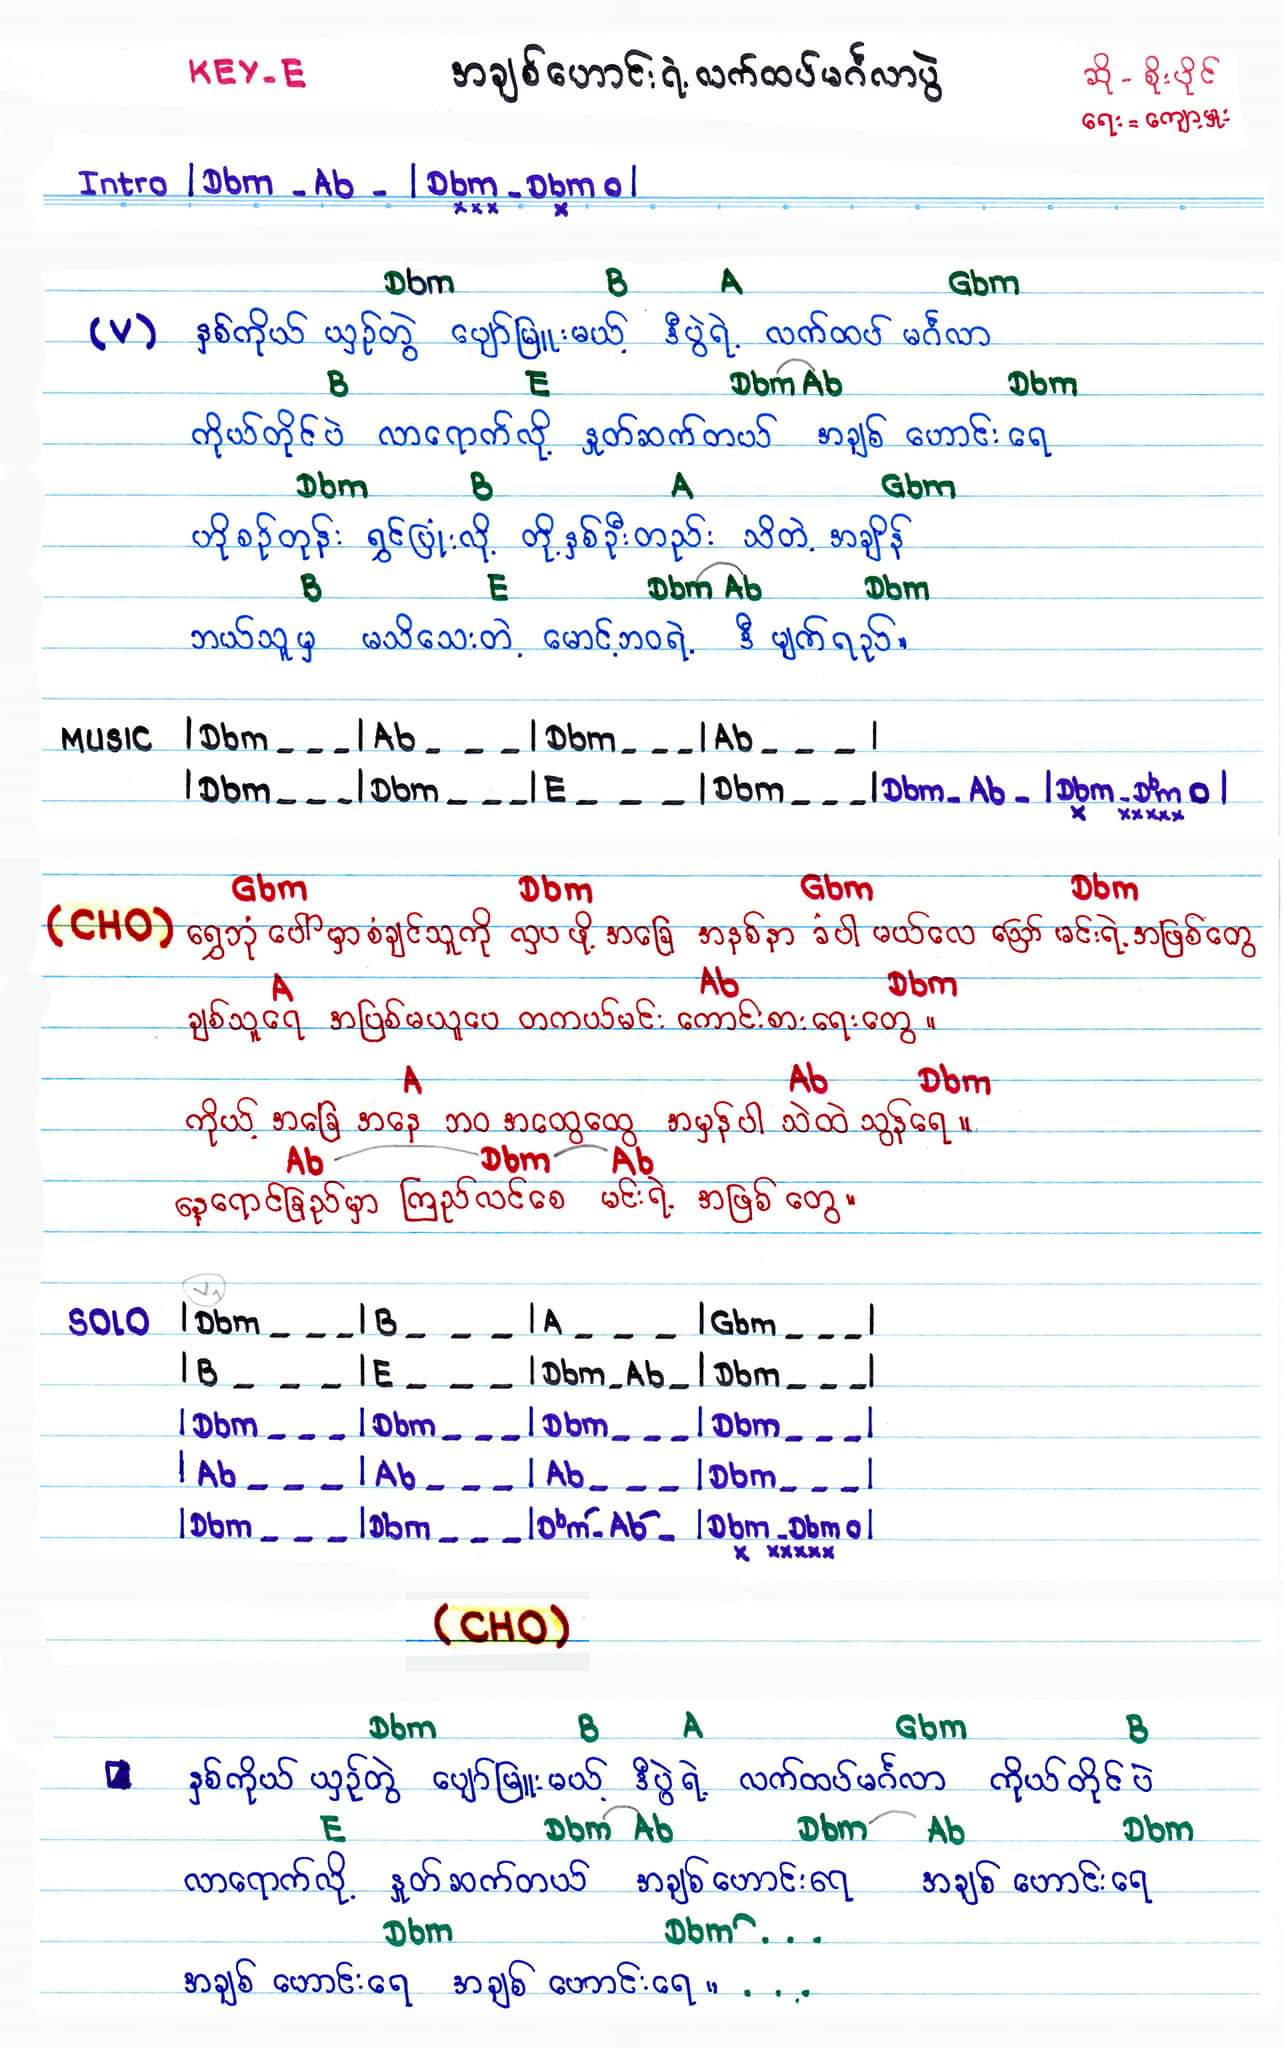 KEY-E အချစ်ဟောင်းရဲ့လက်ထပ်မင်္ဂလာပွဲ ဆို - စိုးပိုင်
ရေး = ကျော့မှူး
Intro |Dbm - Ab - |Dbm - Dbm o|
xxx x
Dbm B A Gbm
(V) နှစ်ကိုယ် ယှဉ်တွဲ ပျော်မြူးမယ့် ဒီပွဲရဲ့ လက်ထပ် မင်္ဂလာ
B E Dbm Ab Dbm
ကိုယ်တိုင်ပဲ လာရောက်လို့ နှုတ်ဆက်တယ် အချစ် ဟောင်းရေ
Dbm B A Gbm
ဟိုစဉ်တုန်း ရွှင်ပြုံးလို့ တို့နှစ်ဦးတည်း သိတဲ့ အချိန်
B E Dbm Ab Dbm
ဘယ်သူမှ မသိသေးတဲ့ မောင့်ဘဝရဲ့ ဒီ မျက်ရည်။
MUSIC |Dbm _ _ _|Ab _ _ _|Dbm _ _ _|Ab _ _ _|
|Dbm _ _ _|Dbm _ _ _|E _ _ _|Dbm _ _ _|Dbm - Ab - |Dbm - Dbm o|
x xxxxx
Gbm Dbm Gbm Dbm
(CHO) ရွှေဘုံ ပေါ်မှာစံချင်သူကို လှပ ဖို့ အခြေ အနစ်နာ ခံပါ မယ်လေ ဪ မင်းရဲ့အဖြစ်တွေ
A Ab Dbm
ချစ်သူရေ အပြစ်မယူပေ တကယ်မင်း ကောင်းစားရေးတွေ ။
A Ab Dbm
ကိုယ့် အခြေ အနေ ဘဝ အထွေထွေ အမှန်ပါ သဲထဲ သွန်ရေ ။
Ab Dbm Ab
နေ့ရောင်ခြည်မှာ ကြည်လင်စေ မင်းရဲ့ အဖြစ် တွေ ။
V1
SOLO |Dbm _ _ _|B _ _ _|A _ _ _|Gbm _ _ _|
|B _ _ _|E _ _ _|Dbm - Ab -|Dbm _ _ _|
|Dbm _ _ _|Dbm _ _ _|Dbm _ _ _|Dbm _ _ _|
|Ab _ _ _|Ab _ _ _|Ab _ _ _|Dbm _ _ _|
|Dbm _ _ _|Dbm _ _ _|Dbm - Ab -|Dbm - Dbm o|
x xxxxx
(CHO)
Dbm B A Gbm B
နှစ်ကိုယ် ယှဉ်တွဲ ပျော်မြူးမယ့် ဒီပွဲရဲ့ လက်ထပ်မင်္ဂလာ ကိုယ်တိုင်ပဲ
E Dbm Ab Dbm Ab Dbm
လာရောက်လို့ နှုတ်ဆက်တယ် အချစ်ဟောင်းရေ အချစ် ဟောင်းရေ
Dbm Dbm . . .
အချစ် ဟောင်းရေ အချစ် ဟောင်းရေ ။ . . .